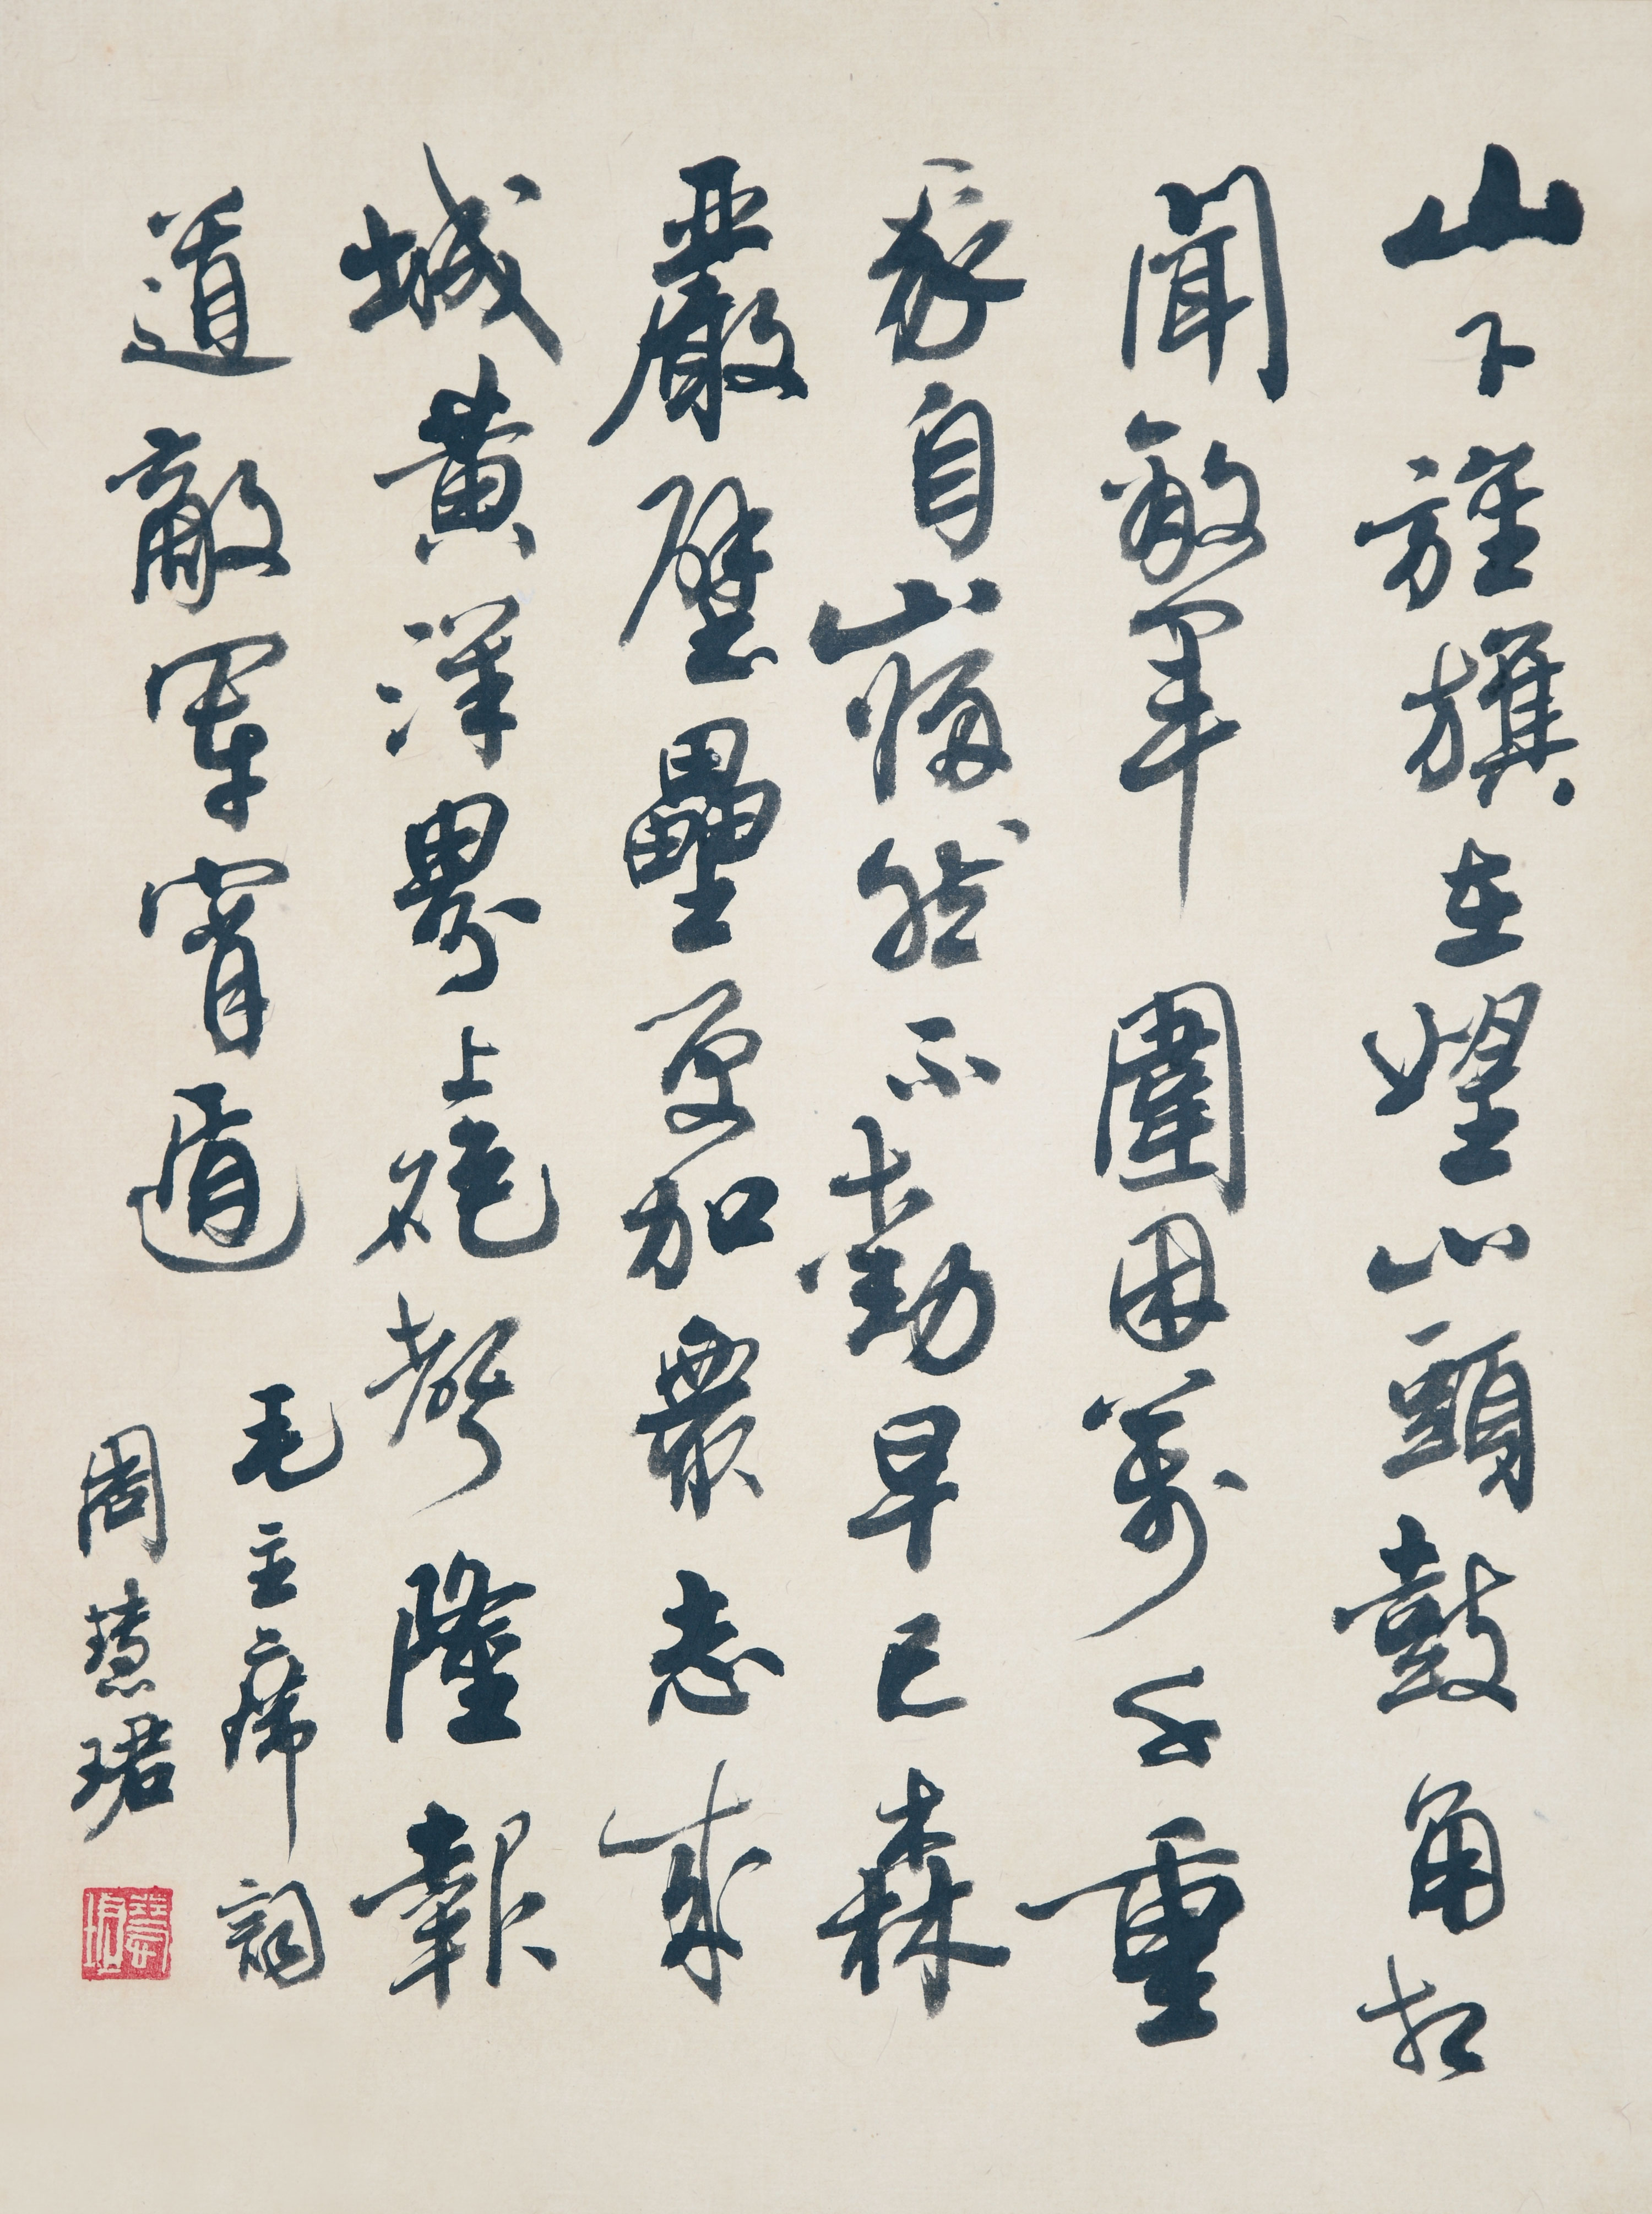 山下旌旗在望山頭鼓角相
聞敵軍圍困萬千重
我自巋然不動早已森
嚴壁壘更加眾志成
城黃洋界上炮聲隆報
道敵軍宵遁
毛主席詞
周慧珺
慧珺